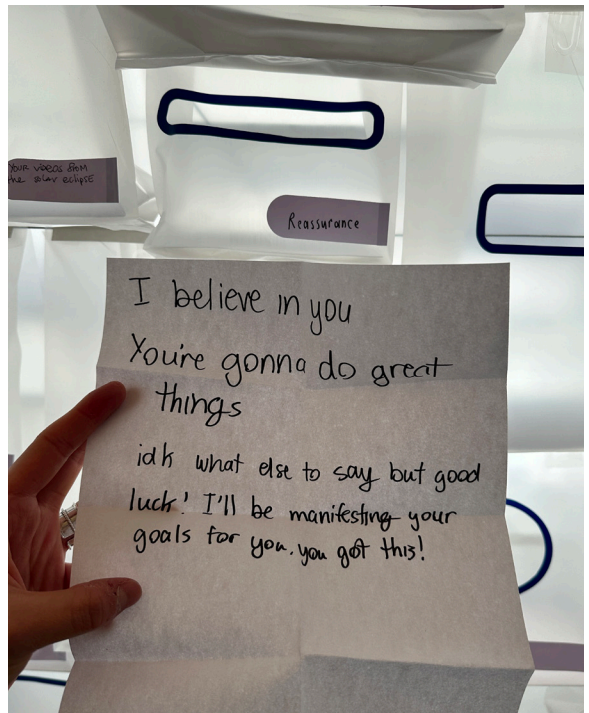 YOUR VIDEOS FROM
the SOLAR ECLIPSE
Reassurance
I believe in you
You're gonna do great
things
idk what else to say but good
luck! I'll be manifesting your
goals for you. you got this!